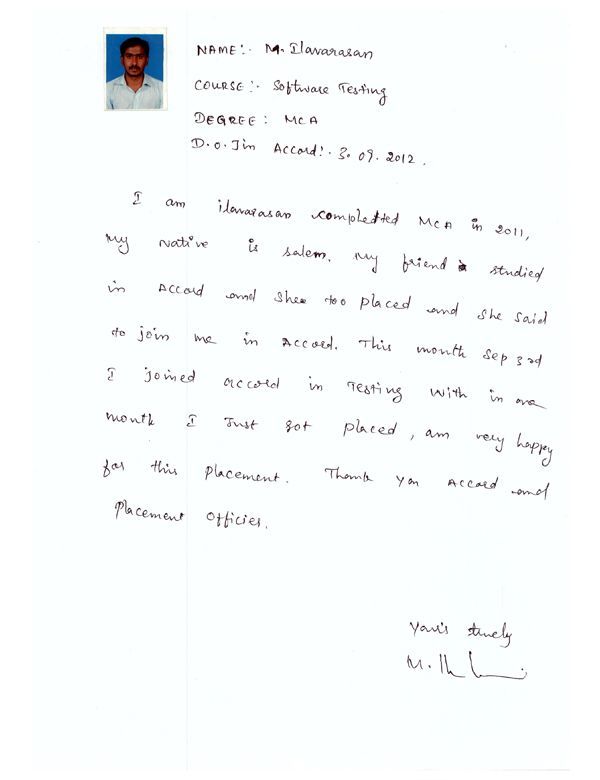 NAME:- M. Ilavarasan
COURSE:- Software Testing
DEGREE: MCA
D.O.Jin Accord:- 3.09.2012.
I am ilavarasan completted MCA in 2011,
My Native is salem. My friend is studied
in Accord and She too placed and she said
to join me in Accord. This month Sep 3rd
I joined accord in Testing with in one
month I Just got placed, am very happy
for this placement. Thank you Accord and
Placement Officies.
Your's truely
M.